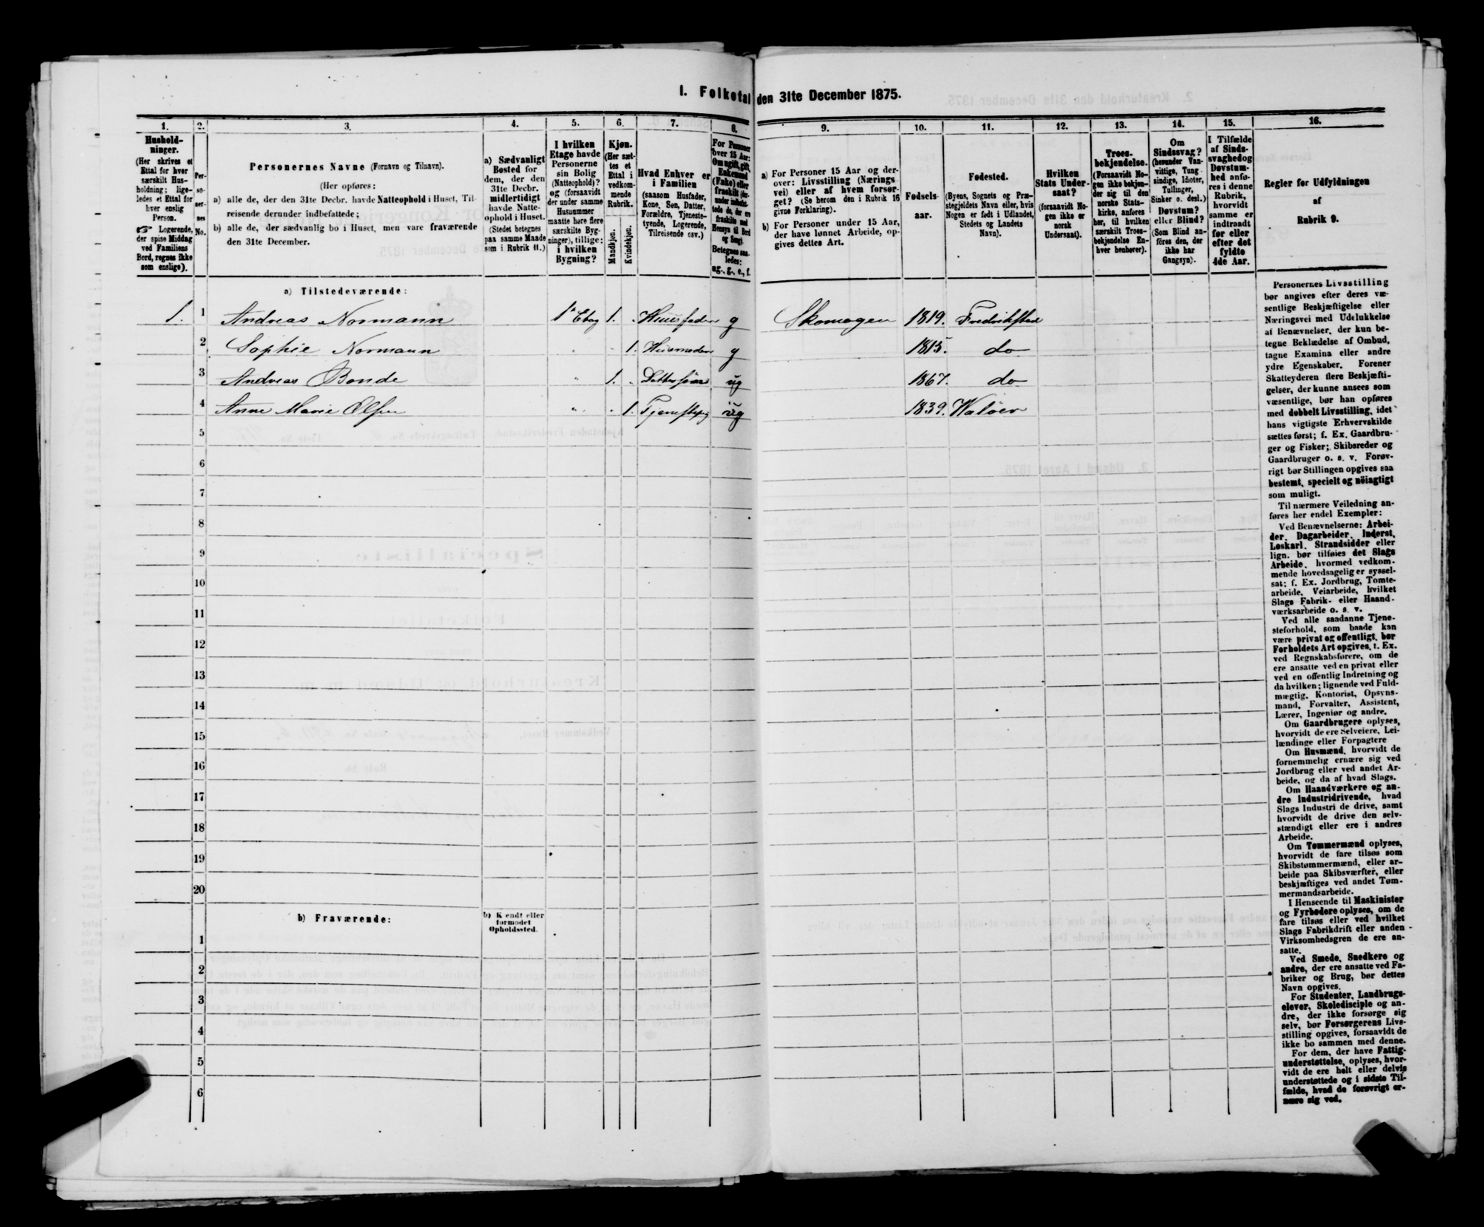 I. Folketal den 31te December 1875.
1. 2. 3. 4. 5. 6. 7. 8. 9. 10. 11. 12. 13. 14. 15. 16.
Hushold-
ninger.
(Her skrives et
Ettal for hver
særskilt Hus-
holdning; lige-
ledes et Ettal for
hver enslig
Person.
Logerende,
der spise Middag
ved Familiens
Bord, regnes ikke
som enslige).
Per-
so-
ner-
nes
No.
Personernes Navne (Fornavn og Tilnavn).
(Her opføres:
a) alle de, der den 31te Decbr. havde Natteophold i Huset, Til-
reisende derunder indbefattede;
b) alle de, der sædvanlig bo i Huset, men vare fraværende
den 31te December.
a) Sædvanligt
Bosted for
dem, der den
31te Decbr.
midlertidigt
havde Natte-
ophold i Huset.
(Stedet betegnes
paa samme Maade
som i Rubrik 11.)
I hvilken
Etage havde
Personerne
sin Bolig
(Natteophold)?
og (forsaavidt
der under samme
Husnummer
maatte høre flere
særskilte Byg-
ninger), tillige:
i hvilken
Bygning?
Kjøn.
(Her sæt-
tes et
Ettal i
vedkom-
mende
Rubrik.
Mandkjøn.
Kvindekjøn.
Hvad Enhver er
i Familien
(saasom Husfader,
Kone, Søn, Datter,
Forældre, Tjeneste-
tyende, Logerende,
Tilreisende osv.)
For Personer
over 15 Aar:
Om ugift, gift,
Enkemand
(Enke) eller
fraskilt
Betegnes saa-
ledes:
ug., g., e., f.
a) For Personer 15 Aar og der-
over: Livsstilling (Nærings
vei) eller af hvem forsør-
get? (Se herom den i Rubrik 16
givne Forklaring).
b) For Personer under 15 Aar,
der have lønnet Arbeide, op-
gives dettes Art.
Fødsels-
aar.
Fødested.
(Byens, Sognets og Præ-
stegjeldets Navn eller, hvis
Nogen er født i Udlandet,
Stedets og Landets
Navn).
Hvilken
Stats Under-
saat?
(forsaavidt No-
gen ikke er
norsk
Undersaat).
Troes-
bekjendelse.
(Forsaavidt No-
gen ikke bekjen-
der sig til den
norske Stats-
kirke, anføres
her, til hvilken
særskilt Troes-
bekjendelse En-
hver henhører).
Om
Sindssvag?
(herunder Van-
vittige, Tung-
sindige, Idioter,
Tullinger,
Sinker o. desl.)
Døvstum?
eller Blind?
(Som Blind an-
føres den, der
ikke har
Gangsyn).
I Tilfælde
af Sinds-
svaghed og
Døvstum-
hed anfø-
res i denne
Rubrik,
hvorvidt
samme er
indtraadt
før eller
efter det
fyldte
4de Aar.
Regler for Udfyldningen
af
Rubrik 9.
a) Tilstedeværende:
1. 1 Andreas Normann 1e Etag 1. Huusfader g Skomager 1819. Fredrikstad
2 Sophie Normann " 1. Huusmoder g 1815. do
3 Andreas Bonde " 1. Dattersøn ug 1867. do
4 Anne Marie Olsen " 1. Tjenstepig ug 1839. Hvaløer
5
6
7
8
9
10
11
12
13
14
15
16
17
18
19
20
b) Fraværende:
b) Kjendt eller
formodet
Opholdssted.
1
2
3
4
5
6
Personernes Livsstilling
bør angives efter deres væ-
sentlige Beskjæftigelse eller
Næringsvei med Udelukkelse
af Benævnelser, der kun be-
tegne Beklædelse af Ombud,
tagne Examina eller andre
ydre Egenskaber. Forener
Skatteyderen flere Beskjæfti-
gelser, der kunne ansees som
væsentlige, bør han opføres
med dobbelt Livsstilling, idet
hans vigtigste Erhvervskilde
sættes først; f. Ex. Gaardbru-
ger og Fisker; Skibsreder og
Gaardbruger o. s. v. Forøv-
rigt bør Stillingen opgives saa
bestemt, specielt og nøiagtigt
som muligt.
Til nærmere Veiledning an-
føres her endel Exempler:
Ved Benævnelserne: Arbei-
der, Dagarbeider, Inderst,
Løskarl, Strandsidder eller
lign. bør tilføies det Slags
Arbeide, hvormed vedkom-
mende hovedsagelig er syssel-
sat; f. Ex. Jordbrug, Tomte-
arbeide, Veiarbeide, hvilket
Slags Fabrik- eller Haand-
værksarbeide o. s. v.
Ved alle saadanne Tjene-
steforhold, som baade kan
være privat og offentligt, bør
Forholdets Art opgives, f. Ex.
ved Regnskabsførere, om de
ere ansatte ved en privat eller
ved en offentlig Indretning og
da hvilken; lignende ved Fuld-
mægtig, Kontorist, Opsyns-
mand, Forvalter, Assistent,
Lærer, Ingeniør og andre.
Om Gaardbrugere oplyses,
hvorvidt de ere Selveiere, Lei-
lændinge eller Forpagtere
Om Husmænd, hvorvidt de
fornemmelig ernære sig ved
Jordbrug eller ved andet Ar-
beide, og da af hvad Slags.
Om Haandværkere og an-
dre Industridrivende, hvad
Slags Industri de drive, samt
hvorvidt de drive den selv-
stændigt eller ere i andres
Arbeide.
Om Tømmermænd oplyses,
hvorvidt de fare tilsøs som
Skibstømmermænd, eller ar-
beide paa Skibsværfter, eller
beskjæftiges ved andet Tøm-
mermandsarbeide.
I Henseende til Maskinister
og Fyrbødere oplyses, om de
fare tilsøs eller ved hvilket
Slags Fabrikdrift eller anden
Virksomhedsgren de ere an-
satte.
Ved Smede, Snedkere og
andre, der ere ansatte ved Fa-
briker og Brug, bør dettes
Navn opgives.
For Studenter, Landbrugs-
elever, Skoledisciple og an-
dre, der ikke forsørge sig
selv, bør Forsørgerens Livs-
stilling opgives, forsaavidt de
ikke bo sammen med denne.
For dem, der have Fattig-
understøttelse, oplyses, hvor-
vidt de ere helt eller delvis
understøttede og i sidste Til-
fælde, hvad de forøvrigt er-
nære sig ved.